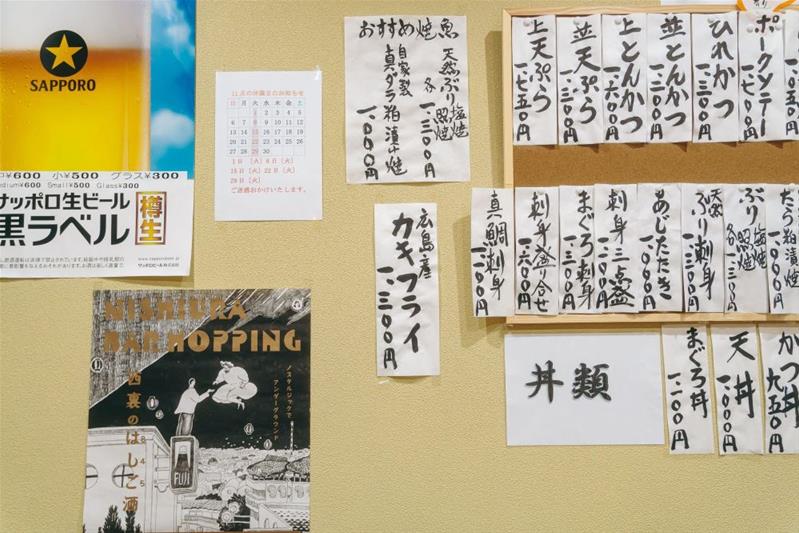 SAPPORO
中¥600 小¥500 グラス¥300
Medium¥600 Small¥500 Glass¥300
サッポロ生ビール
黒ラベル
樽生
サッポロビール株式会社
日 月 火 水 木 金 土
1 2 3 4 5
6 7 8 9 10 11 12
13 14 15 16 17 18 19
20 21 22 23 24 25 26
27 28 29 30
1日(火)8日(火)
15日(火)22日(火)
29日(火)
ご迷惑おかけいたします。
おすすめ焼魚
天然ぶり塩焼
照焼
各一、三〇〇円
自家製
真ダラ粕漬け焼
一、〇〇〇円
広島産
カキフライ
一、三〇〇円
ポークソテー
ひれかつ
並とんかつ
一、三〇〇円
上とんかつ
一、六〇〇円
並天ぷら
一、三〇〇円
上天ぷら
一、七五〇円
たら粕漬焼
一、〇〇〇円
ぶり塩焼
照焼
各一、三〇〇円
天然
ぶり刺身
あじたたき
刺身三点盛
まぐろ刺身
刺身盛り合せ
一、六〇〇円
真鯛刺身
丼類
かつ丼
九五〇円
天丼
まぐろ丼
一、一〇〇円
NISHIURA
BAR HOPPING
ノスタルジックで
アンダーグラウンド
西裏のはしご酒
8 4 5
FUJI